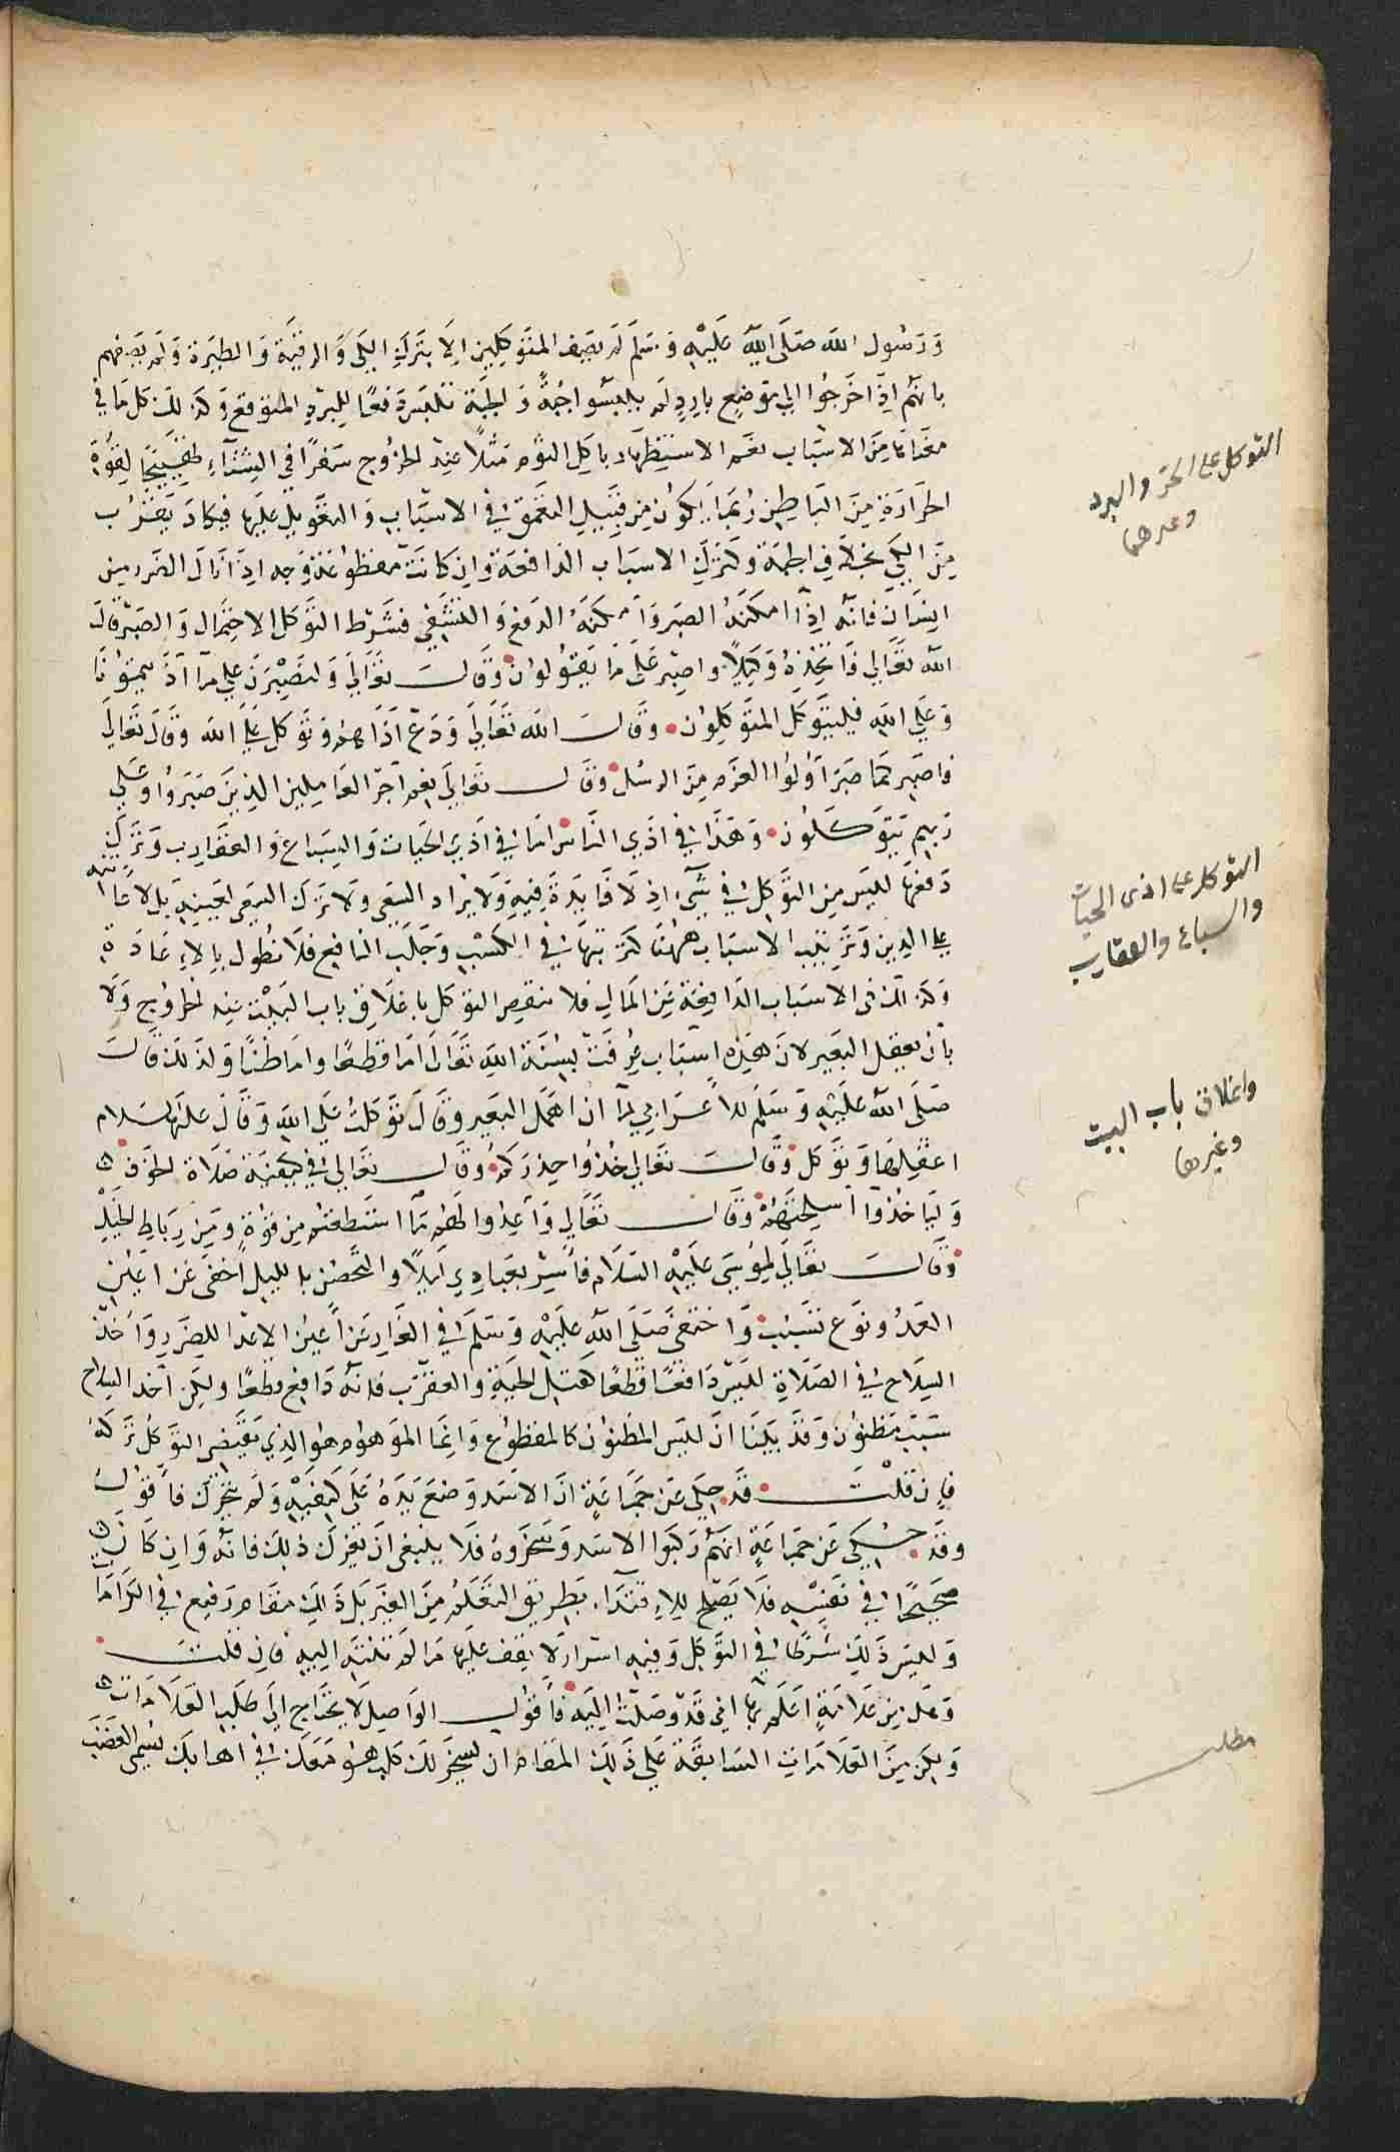 ورسول الله صلى الله عليه وسلم لم يصف المتوكلين الا بترك الكى والرقية والطيرة ولم يصفهم
بانهم اذا خرجوا الى موضع بارد لم يلبسوا جبة والجبة تلبس دفعا للبرد المتوقع وكذلك كل ما في
معناها من الاسباب نعم الاستظهار باكل الثوم مثلا عند الخروج سفرا في الشتاء تهييجا لقوة
الحرارة من الباطن ربما يكون من قبيل التعمق في الاسباب والتعويل عليها فيكاد يقرب
من الكي بخلاف الجبة ولترك الاسباب الدافعة وان كانت مقطوعة وجه اذا نال الضرر من
انسان فانه اذا امكنه الصبر وامكنه الدفع والتشفي فشرط التوكل الاحتمال والصبر قال
الله تعالى فاتخذه وكيلا واصبر على ما يقولون وقال تعالى ولنصبرن على ما آذيتمونا
وعلى الله فليتوكل المتوكلون وقال الله تعالى ودع اذاهم وتوكل على الله وقال تعالى
فاصبر كما صبر اولوا العزم من الرسل وقال تعالى نعم اجر العاملين الذين صبروا وعلى
ربهم يتوكلون وهذا في اذي الناس اما في اذي الحيات والسباع والعقارب وترك
دفعها ليس من التوكل في شيء اذ لا فايدة فيه ولا يراد السعي ولا ترك السعي لعينه بل لاعانته
على الدين وترتيب الاسباب ههنا كترتبها في الكسب وجلب النافع فلا نطول بالاعادة
وكذلك في الاسباب الدافعة عن المال فلا ينقص التوكل باغلاق باب البيت عند الخروج ولا
بان يعقل البعير لان هذه اسباب عرفت بسنة الله تعالى اما قطعا واما ظنا ولذلك قال
صلى الله عليه وسلم للاعرابي لما ان اهمل البعير وقال توكلت على الله وقال عليه السلام
اعقلها وتوكل وقال تعالى خذوا حذركم وقال تعالى في كيفية صلاة الخوف
ولياخذوا اسلحتهم وقال تعالى واعدوا لهم ما استطعتم من قوة ومن رباط الخيل
وقال تعالى لموسى عليه السلام فأسر بعبادي ليلا والتحصن بالليل اخفى عن اعين
العدو نوع تسبب واختفى صلى الله عليه وسلم في الغار عن اعين الاعدا للضرر واخذ
السلاح في الصلاة ليس دافعا قطعا كقتل الحية والعقرب فانه دافع قطعا ولكن اخذ السلاح
سبب مظنون وقد بينا ان ليس المظنون كالمقطوع وانما الموهوم هو الذي يقتضي التوكل تركه
فان قلت قد حكى عن جماعة ان الاسد وضع يده على كتفيه ولم يتحرك فأقول
وقد حكي عن جماعة انهم ركبوا الاسد وسخروه فلا ينبغي ان يغرك ذلك فانه وان كان
صحيحا في نفسه فلا يصح للاقتدا بطريق التعلم من الغير بل ذلك مقام رفيع في الكرامات
وليس ذلك شرطا في التوكل وفيه اسرار لا يقف عليها من لم تنته اليه فان قلت
وهل من علامة اعلم بها اني قد وصلت اليه فأقول الواصل لا يحتاج الى طلب العلامات
ولكن من العلامات السابقة على ذلك المقام ان يسخر لك كلب هو معك في اهابك يسمى الغضب
التوكل على الحر والبرد
وغيرهما
التوكل على اذى الحيات
والسباع والعقارب
واغلاق باب البيت
وغيرها
مطلب